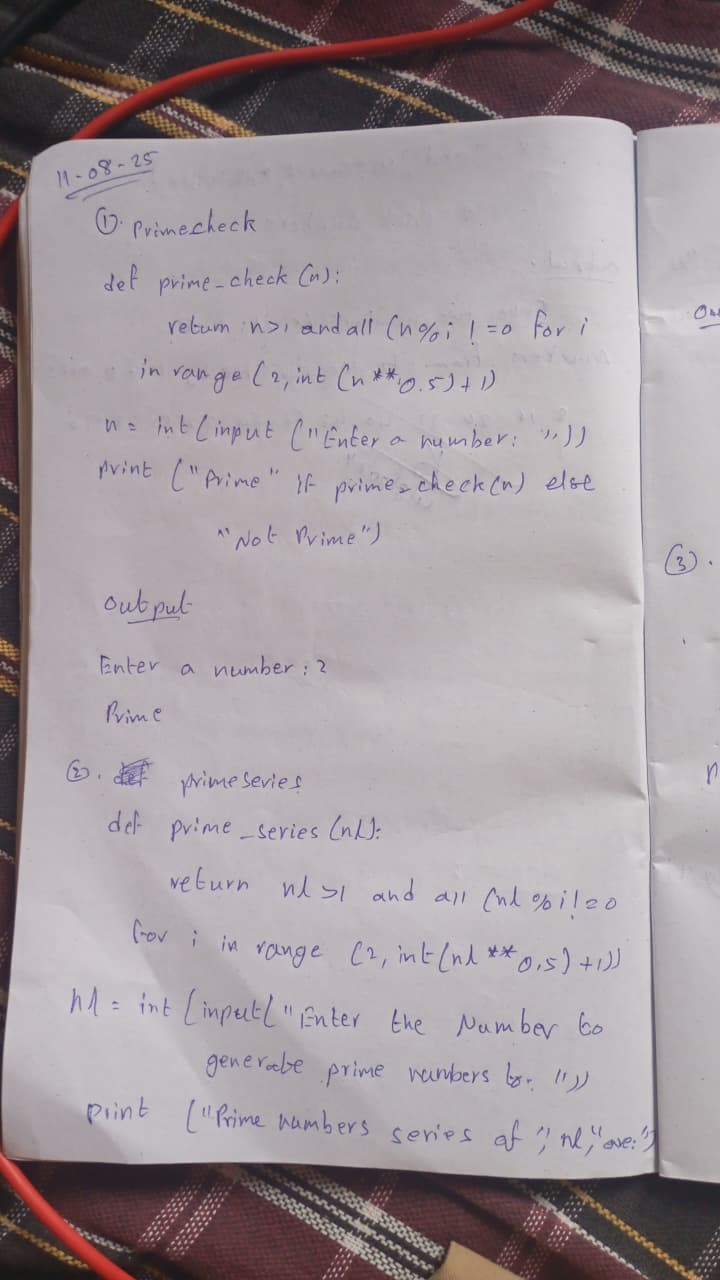 11-08-25
①. Primecheck
def prime_check (n):
return n>1 and all (n%i != 0 for i
in range (2, int (n**0.5)+1)
n = int (input ("Enter a number: "))
print ("Prime" if prime_check(n) else
"Not Prime")
output
Enter a number : 2
Prime
②. primeseries
def prime_series (n1):
return n1 >1 and all (n1 % i != 0
for i in range (2, int (n1 ** 0.5) +1))
n1 = int (input ("Enter the Number to
generate prime numbers "))
print ("Prime numbers series of ", n1, "are:")
③.
n